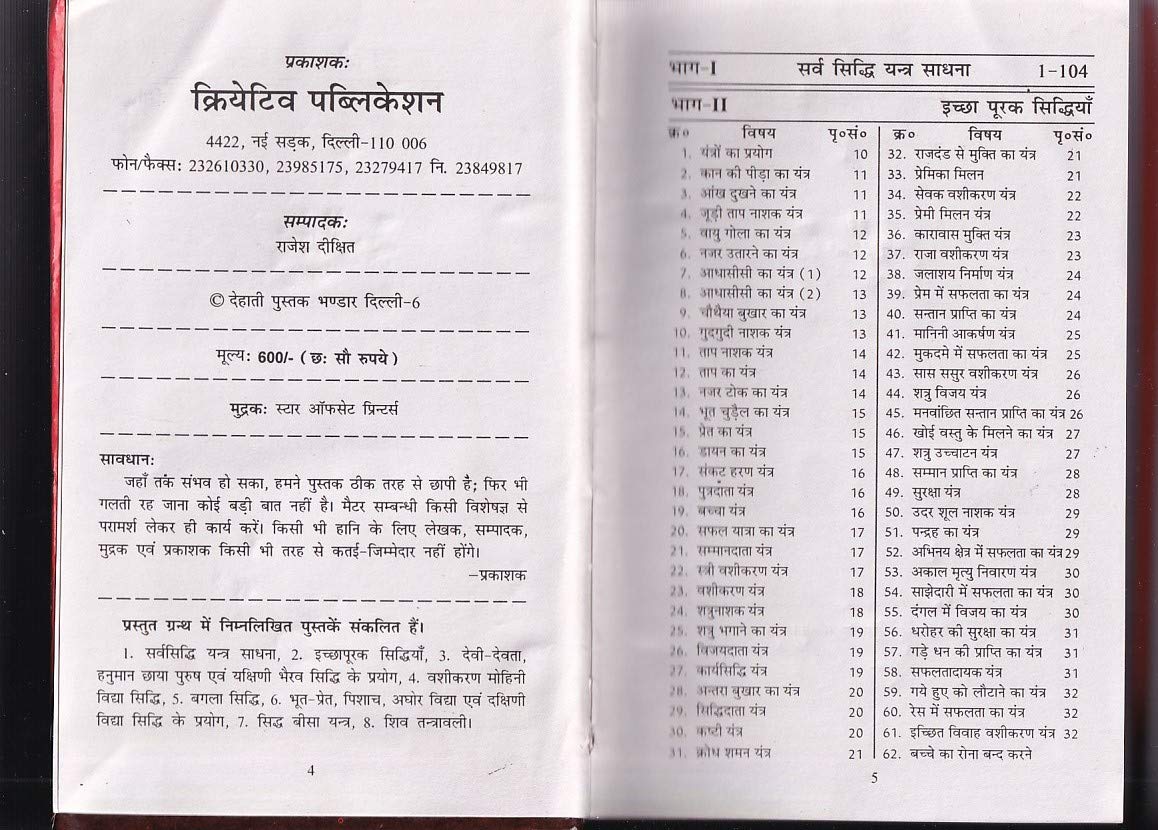 प्रकाशकः
क्रियेटिव पब्लिकेशन
4422, नई सड़क, दिल्ली-110 006
फोन/फैक्स: 232610330, 23985175, 23279417 नि. 23849817
सम्पादकः
राजेश दीक्षित
© देहाती पुस्तक भण्डार दिल्ली-6
मूल्यः 600/- ( छः सौ रुपये )
मुद्रकः स्टार ऑफसेट प्रिन्टर्स
सावधानः
जहाँ तक संभव हो सका, हमने पुस्तक ठीक तरह से छापी है; फिर भी
गलती रह जाना कोई बड़ी बात नहीं है। मैटर सम्बन्धी किसी विशेषज्ञ से
परामर्श लेकर ही कार्य करें। किसी भी हानि के लिए लेखक, सम्पादक,
मुद्रक एवं प्रकाशक किसी भी तरह से कतई-जिम्मेदार नहीं होंगे।
–प्रकाशक
प्रस्तुत ग्रन्थ में निम्नलिखित पुस्तकें संकलित हैं।
1. सर्वसिद्धि यन्त्र साधना, 2. इच्छापूरक सिद्धियाँ, 3. देवी-देवता,
हनुमान छाया पुरुष एवं यक्षिणी भैरव सिद्धि के प्रयोग, 4. वशीकरण मोहिनी
विद्या सिद्धि, 5. बगला सिद्धि, 6. भूत-प्रेत, पिशाच, अघोर विद्या एवं दक्षिणी
विद्या सिद्धि के प्रयोग, 7. सिद्ध बीसा यन्त्र, 8. शिव तन्त्रावली।
4
भाग-I सर्व सिद्धि यन्त्र साधना 1-104
भाग-II इच्छा पूरक सिद्धियाँ
क्र० विषय पृ०सं०
1. यंत्रों का प्रयोग 10
2. कान की पीड़ा का यंत्र 11
3. आंख दुखने का यंत्र 11
4. जूड़ी ताप नाशक यंत्र 11
5. वायु गोला का यंत्र 12
6. नजर उतारने का यंत्र 12
7. आधासीसी का यंत्र (1) 12
8. आधासीसी का यंत्र (2) 13
9. चौथैया बुखार का यंत्र 13
10. गुदगुदी नाशक यंत्र 13
11. ताप नाशक यंत्र 14
12. ताप का यंत्र 14
13. नजर टोक का यंत्र 14
14. भूत चुड़ैल का यंत्र 15
15. प्रेत का यंत्र 15
16. डायन का यंत्र 15
17. संकट हरण यंत्र 16
18. पुत्रदाता यंत्र 16
19. बच्चा यंत्र 16
20. सफल यात्रा का यंत्र 17
21. सम्मानदाता यंत्र 17
22. स्त्री वशीकरण यंत्र 17
23. वशीकरण यंत्र 18
24. शत्रुनाशक यंत्र 18
25. शत्रु भगाने का यंत्र 19
26. विजयदाता यंत्र 19
27. कार्यसिद्धि यंत्र 19
28. अन्तरा बुखार का यंत्र 20
29. सिद्धिदाता यंत्र 20
30. कष्टी यंत्र 20
31. क्रोध शमन यंत्र 21
क्र० विषय पृ०सं०
32. राजदंड से मुक्ति का यंत्र 21
33. प्रेमिका मिलन 21
34. सेवक वशीकरण यंत्र 22
35. प्रेमी मिलन यंत्र 22
36. कारावास मुक्ति यंत्र 23
37. राजा वशीकरण यंत्र 23
38. जलाशय निर्माण यंत्र 24
39. प्रेम में सफलता का यंत्र 24
40. सन्तान प्राप्ति का यंत्र 24
41. मानिनी आकर्षण यंत्र 25
42. मुकदमे में सफलता का यंत्र 25
43. सास ससुर वशीकरण यंत्र 26
44. शत्रु विजय यंत्र 26
45. मनवांछित सन्तान प्राप्ति का यंत्र 26
46. खोई वस्तु के मिलने का यंत्र 27
47. शत्रु उच्चाटन यंत्र 27
48. सम्मान प्राप्ति का यंत्र 28
49. सुरक्षा यंत्र 28
50. उदर शूल नाशक यंत्र 29
51. पन्द्रह का यंत्र 29
52. अभिनय क्षेत्र में सफलता का यंत्र 29
53. अकाल मृत्यु निवारण यंत्र 30
54. साझेदारी में सफलता का यंत्र 30
55. दंगल में विजय का यंत्र 30
56. धरोहर की सुरक्षा का यंत्र 31
57. गड़े धन की प्राप्ति का यंत्र 31
58. सफलतादायक यंत्र 31
59. गये हुए को लौटाने का यंत्र 32
60. रेस में सफलता का यंत्र 32
61. इच्छित विवाह वशीकरण यंत्र 32
62. बच्चे का रोना बन्द करने
5